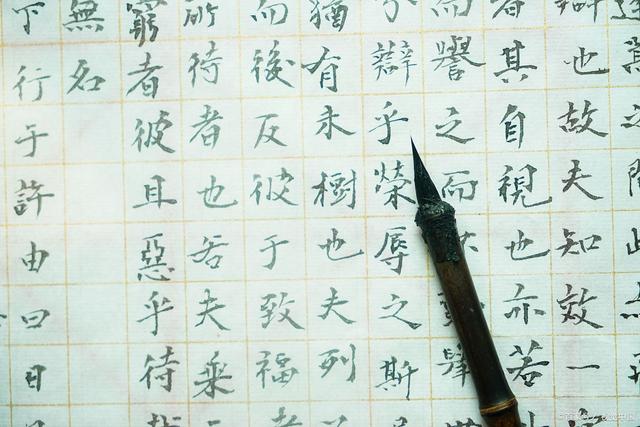 辯也故夫知效一
者其自視也亦若
而譽之而
分辯乎榮辱之斯
猶有未樹也夫列
而後反彼于致福者
所待者也若夫乘
窮者彼且惡乎待哉
無名
下行于許由曰日月